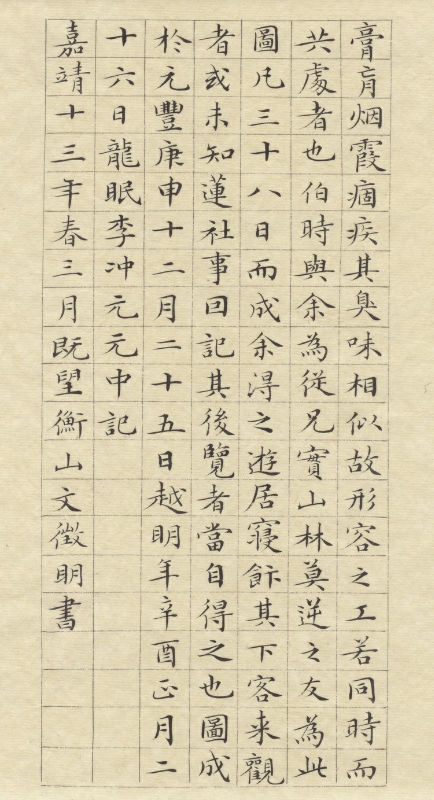 膏肓烟霞痼疾其臭味相似故形容之工若同時而
共處者也伯時與余為從兄實山林莫逆之友為此
圖凡三十八日而成余淂之遊居寝飰其下客来觀
者或未知蓮社事因記其後覽者當自得之也圖成
於元豐庚申十二月二十五日越明年辛酉正月二
十六日龍眠李冲元元中記
嘉靖十三年春三月既望衡山文徵明書